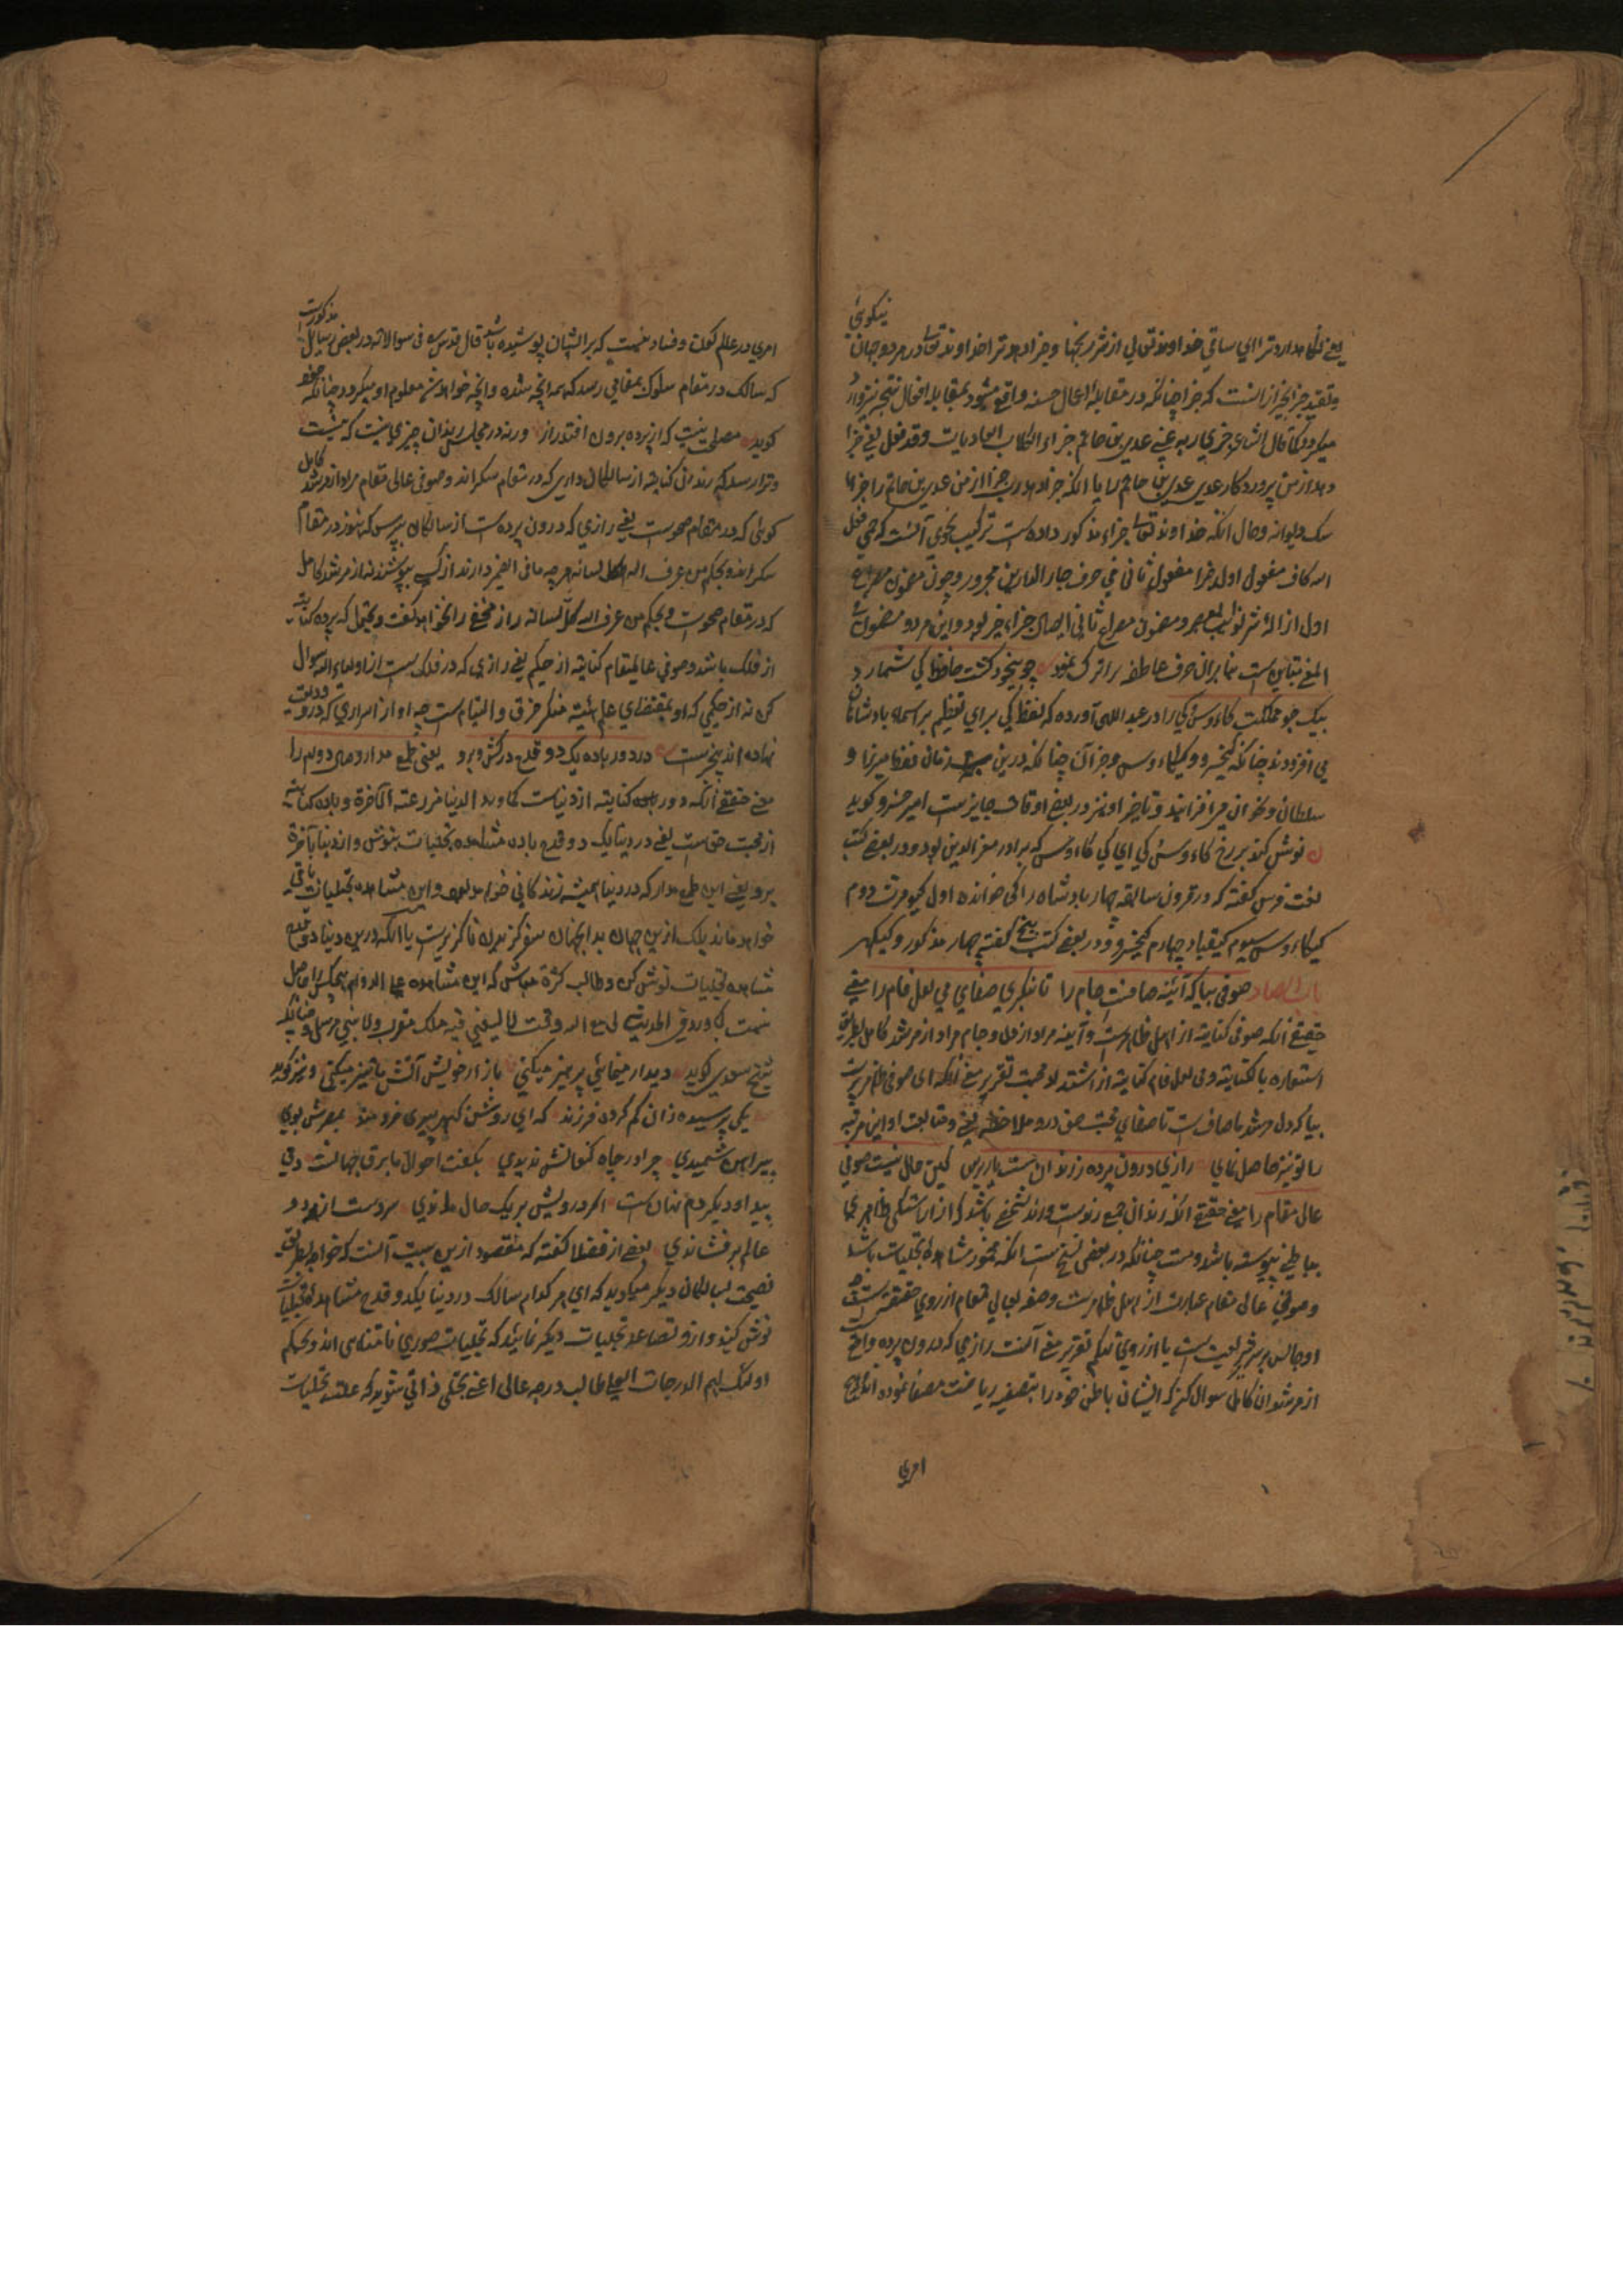 نیکوئی
یعنی نگاهدارد ترا ای ساقی خداوند تعالی از شر رنجها و جزا دهد ترا خداوند تعالی در هر دو جهان
و تقید جزا بخیر از آنست که جزا چنانکه در مقابله اعمال حسنه واقع میشود بمقابله افعال قبیحه نیز وارد
میگردد کما قال الشاعر جزی ربه عنی عدی بن حاتم جزاء الکلاب العادیات وقد فعل یعنی جزا
دهد از من پروردگار عدی عدی بن حاتم را یا آنکه جزا دهد رب جزا از من عدی بن حاتم را جزاء
سگ دیوانه و حال آنکه خداوند تعالی جزاء مذکور داده است ترکیب نحوی آنست که جزی فعل
الله کاف مفعول اول خیرا مفعول ثانی فی حرف جار الدارین مجرور و چون مضمون مصرع
اول از الله شر نوایب دهر و مضمون مصراع ثانی ایصال جزاء خیر بود و این هر دو مضمون
المعنی متباین است بنا بران حرف عاطفه را ترک نمود چو بیخود گشت حافظ کی شمارد
بیک جو مملکت کاوس کی را در عبداللهی آورده که لفظ کی برای تعظیم بر اسماء بادشاهان
می افزودند چنانکه کیخسرو و کیکاوس و جز آن چنانکه درین زمان لفظ میرزا و
سلطان و خان می افزایند و تاخیر او نیز در بعض اوقات جایزست امیر خسرو گوید
نوش کند بر رخ کاوس کی ای کی کاوس که برادر معز الدین بود و در بعضی کتب
لغت فرس گفته که در قرون سابقه چهار بادشاه را کی خوانده اول کیومرث دوم
کیکاوس سیوم کیقباد چهارم کیخسرو و در بعضی کتب پنج گفته چهار مذکور و کیکهر
باب الصاد صوفی بیا که آئینه صافست جام را تا بنگری صفای می لعل فام را معنی
حقیقی آنکه صوفی کنایته از اهل ظاهرست و آیینه مراد از دل و جام مراد از مرشد کامل بطریق
استعاره بالکنایته و می لعل فام کنایته از اشتداد محبت تقریر معنی آنکه ای صوفی ظاهر پرست
بیا که دل مرشد ما صافست تا صفای محبت حق درو ملاحظه کنی و متابعت او این مرتبه
را تو نیز حاصل نمائی رازی درون پرده ز رندان مست پرس کین حال نیست صوفی
عالی مقام را معنی حقیقی آنکه رندان جمع رندست و رند شخصی باشد که از آراستگی ظاهر بری
بباطنی پیوسته باشد و مست چنانکه در بعضی نسخ است آنکه مخمور مشاهده تجلیات باشد
و صوفی عالی مقام عبارت از اهل ظاهرست و صفت بعالی مقام از روی حقیقت است
او جالس بر سر شریعت است یا از روی تهکم تقریر معنی آنست رازی که درون پرده واقع است
از مرشدان کامل سوال کن که ایشان باطن خود را بتصفیه ریاضت مصفا نموده اند
امری
مذکورست
امری در عالم کون و فساد نیست که بر ایشان پوشیده باشد قال قدس سره فی سوالاته در بعض رسایل
که سالک در مقام سلوک بمقامی رسد که همه انچه شده و انچه خواهد شد معلوم او میگردد چنانکه حافظ
گوید مصلحت نیست که از پرده برون افتد راز ورنه در مجلس رندان چیزی نیست که نیست
و ترا رسد که رند مراد کنایته از سالکان داری که در مقام سکراند و صوفی عالی مقام مراد از مرشد کامل
گوئی که در مقام صحوست یعنی رازی که درون پرده است از سالکان بپرس که هنوز در مقام
سکراند و بحکم من عرف الله کل لسانه هر چه مافی الضمیر دارند از کسی بپوشند نه از مرشد کامل
که در مقام صحوست و بحکم من عرف الله کل لسانه راز مخفی را نخواهد گفت و یحتمل که پرده کنایته
از فلک باشد و صوفی عالیمقام کنایته از حکیم یعنی رازی که در فلک است از اولیاء الله سوال
کن نه از حکیمی که او بمقتضای علم هیئته منکر خرق و التیام است چه او از اسراری که درو ودیعت
نهاده اند بیخبرست در دور باده یک دو قدح درکش و برو یعنی طمع مدار وصال دوام را
معنی حقیقی آنکه دور باده کنایته از دنیاست کما ورد الدنیا مزرعة الآخرة و باده کنایته
از محبت حق است یعنی در دنیا یک دو قدح باده مشاهده تجلیات بنوش و از دنیا بآخرة
برو یعنی این طمع مدار که در دنیا همیشه زندگانی خواهد بود و این مشاهده تجلیات باقی
خواهد ماند بلک ازین جهان بدان جهان سفر گزیدن ناگزیرست یا آنکه درین دنیا دو قدح
مشاهده تجلیات نوش کن و طالب کثرة مباش که این مشاهده علی الدوام هیچکس را حاصل
نیست کما ورد فی الحدیث لی مع الله وقت لا یسعنی فیه ملک مقرب ولا نبی مرسل و چنانکه
شیخ سعدی گوید دیدار مینمائی پرهیز میکنی بازار خویش آتش ما تیز میکنی و نیز گوید
یکی پرسید زان گم کرده فرزند که ای روشن گهر پیر خردمند ز مصرش بوی
پیراهن شمیدی چرا در چاه کنعانش ندیدی بگفت احوال ما برق جهانست دمی
پیدا و دیگر دم نهانست اگر درویش بر یک حال ماندی سر دست از دو
عالم بر فشاندی بعضی از فضلا گفته که مقصود ازین بیت آنست که خواجه بطریق
نصیحت بسالکان دیگر میگوید که ای هر کدام سالک در دنیا یکدو قدح مشاهده تجلیات
نوش کنید و ازو تصاعد تجلیات دیگر نمایید که تجلیات صوری نامتناهی اند و بحکم
اولئک لهم الدرجات العلی طالب درجه عالی اعنی تجلی ذاتی شوید که علت تجلیات